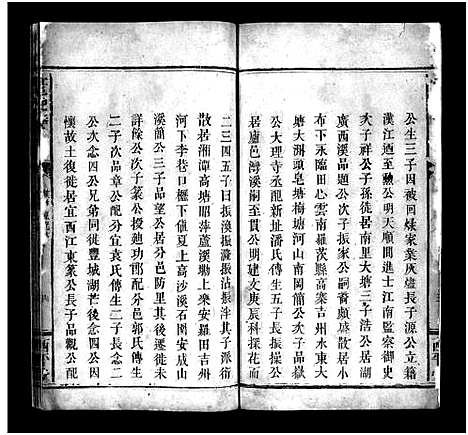 公生三子因被回煤家業灰燼長子源公立籍
漢江迺至勲公明天順間進士江南監察御史
次子祥公子孫徒居南里大塘三子浩公居湖
廣西溪品題公次子振家公嗣裔頗盛散居小
布下永臨田心雲南羅茨縣高寨吉州水東大
塘大湖頭皂塘梅塘河山南岡簡公次子品嶽
公大理寺丞配新址潘氏傳生五子長子貫一
居廬邑灣溪嗣至貫公明建文庚辰科探花而
二三四五子日振溪振濟振沾振泮其子派衍
散居湘潭高塘昭萍蘆溪瀨上來安羅田吉州
河下李巷口櫪下傾夏上高沙溪石圍安成山
溪簡公三子品望公居分邑防里其後遷徙未
詳餘公次子篆公授廸功郎配分邑郭氏傳生
二子次品章公配分宜袁氏傳生二子長念三
公次念四公兄弟同徙豐城湖茫後念四公因
懷故土復徙居宜西江東篆公長子品觀公配